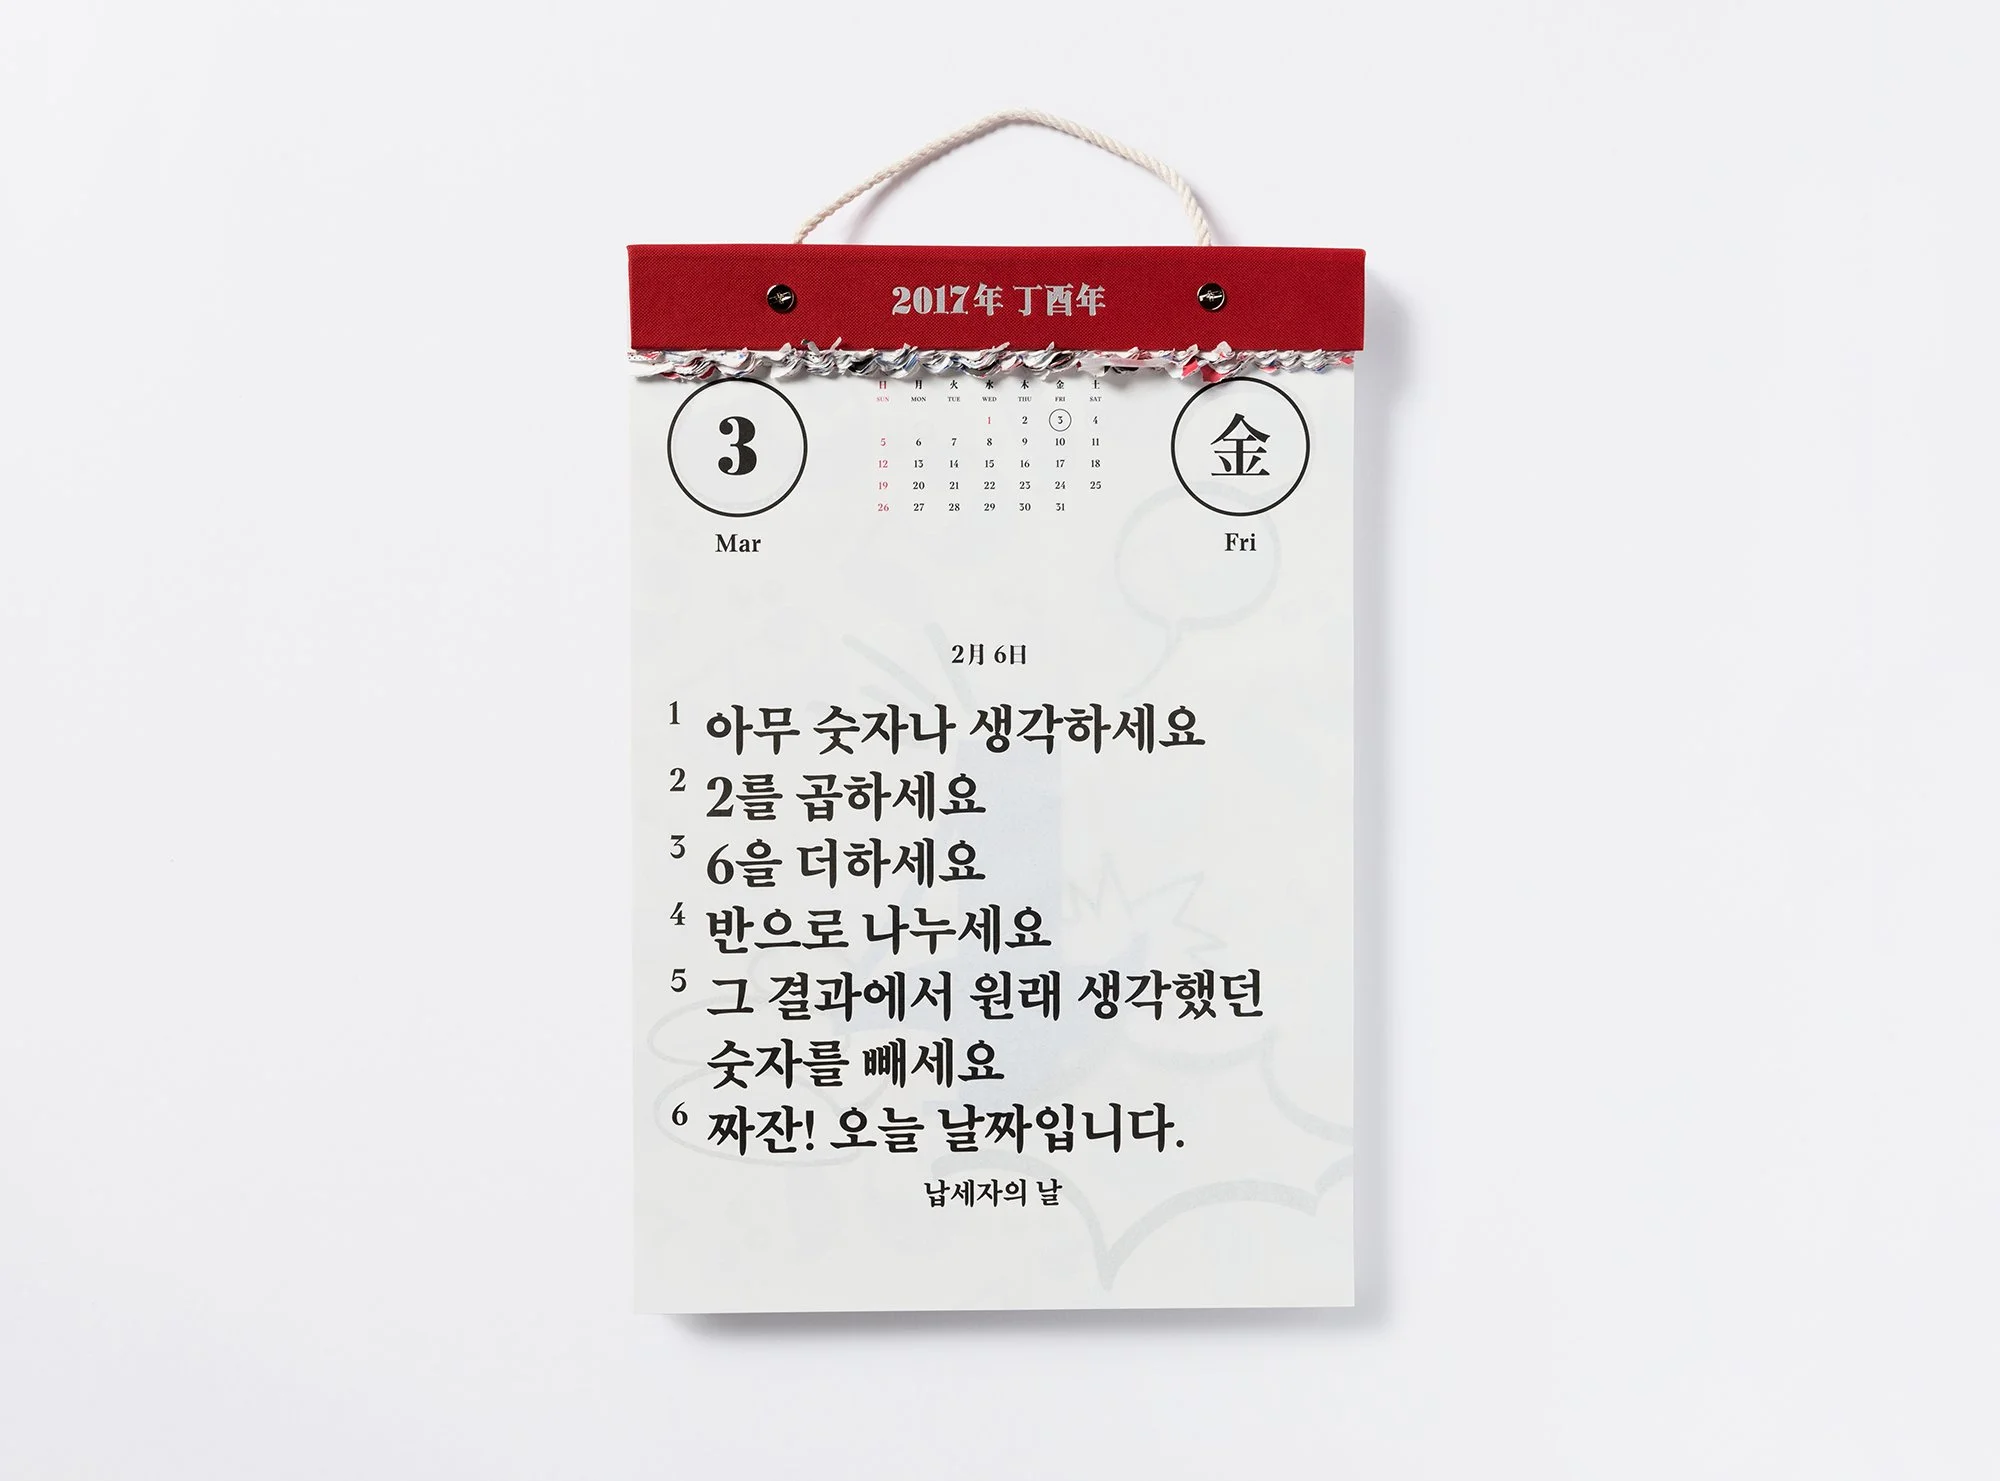 2017年 丁酉年
3
Mar
日 月 火 水 木 金 土
SUN MON TUE WED THU FRI SAT
1 2 3 4
5 6 7 8 9 10 11
12 13 14 15 16 17 18
19 20 21 22 23 24 25
26 27 28 29 30 31
金
Fri
2月 6日
1 아무 숫자나 생각하세요
2 2를 곱하세요
3 6을 더하세요
4 반으로 나누세요
5 그 결과에서 원래 생각했던
숫자를 빼세요
6 짜잔! 오늘 날짜입니다.
납세자의 날